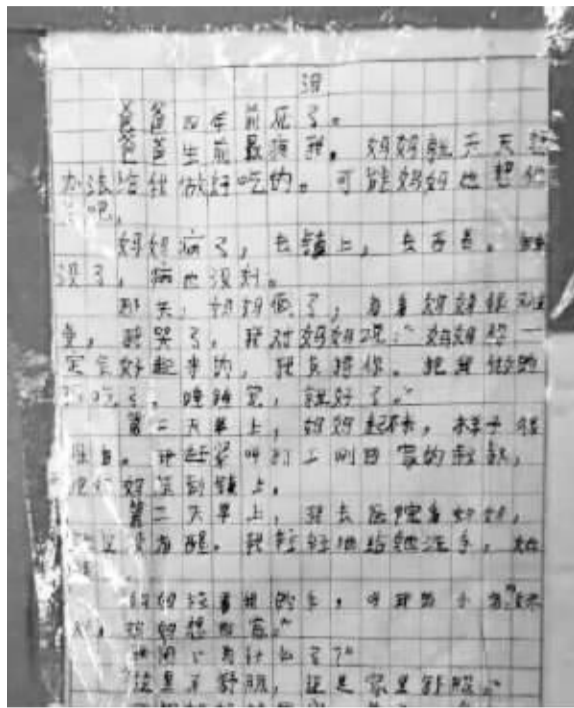 泪
爸爸四年前死了。
爸爸生前最疼我,妈妈就天天想
办法给我做好吃的。可能妈妈也想他
了吧。
妈妈病了,去镇上,去西昌,
没了,病也没好。
那天,妈妈倒了,看着妈妈很难
受,我哭了。我对妈妈说:“妈妈你一
定会好起来的,我支持你。把我做的
吃了,睡睡觉,就好了。”
第二天早上,妈妈起不来,样子很
难看。我赶紧叫打工刚回家的叔叔,
把妈妈送到镇上。
第三天早上,我去医院看妈妈,
她还没有醒。我轻轻地给她洗手,她
妈妈拉着我的手,叫我的小名:“妹
妹,妈妈想回家。”
我问:“为什么了?”
“这里不舒服,还是家里舒服。”